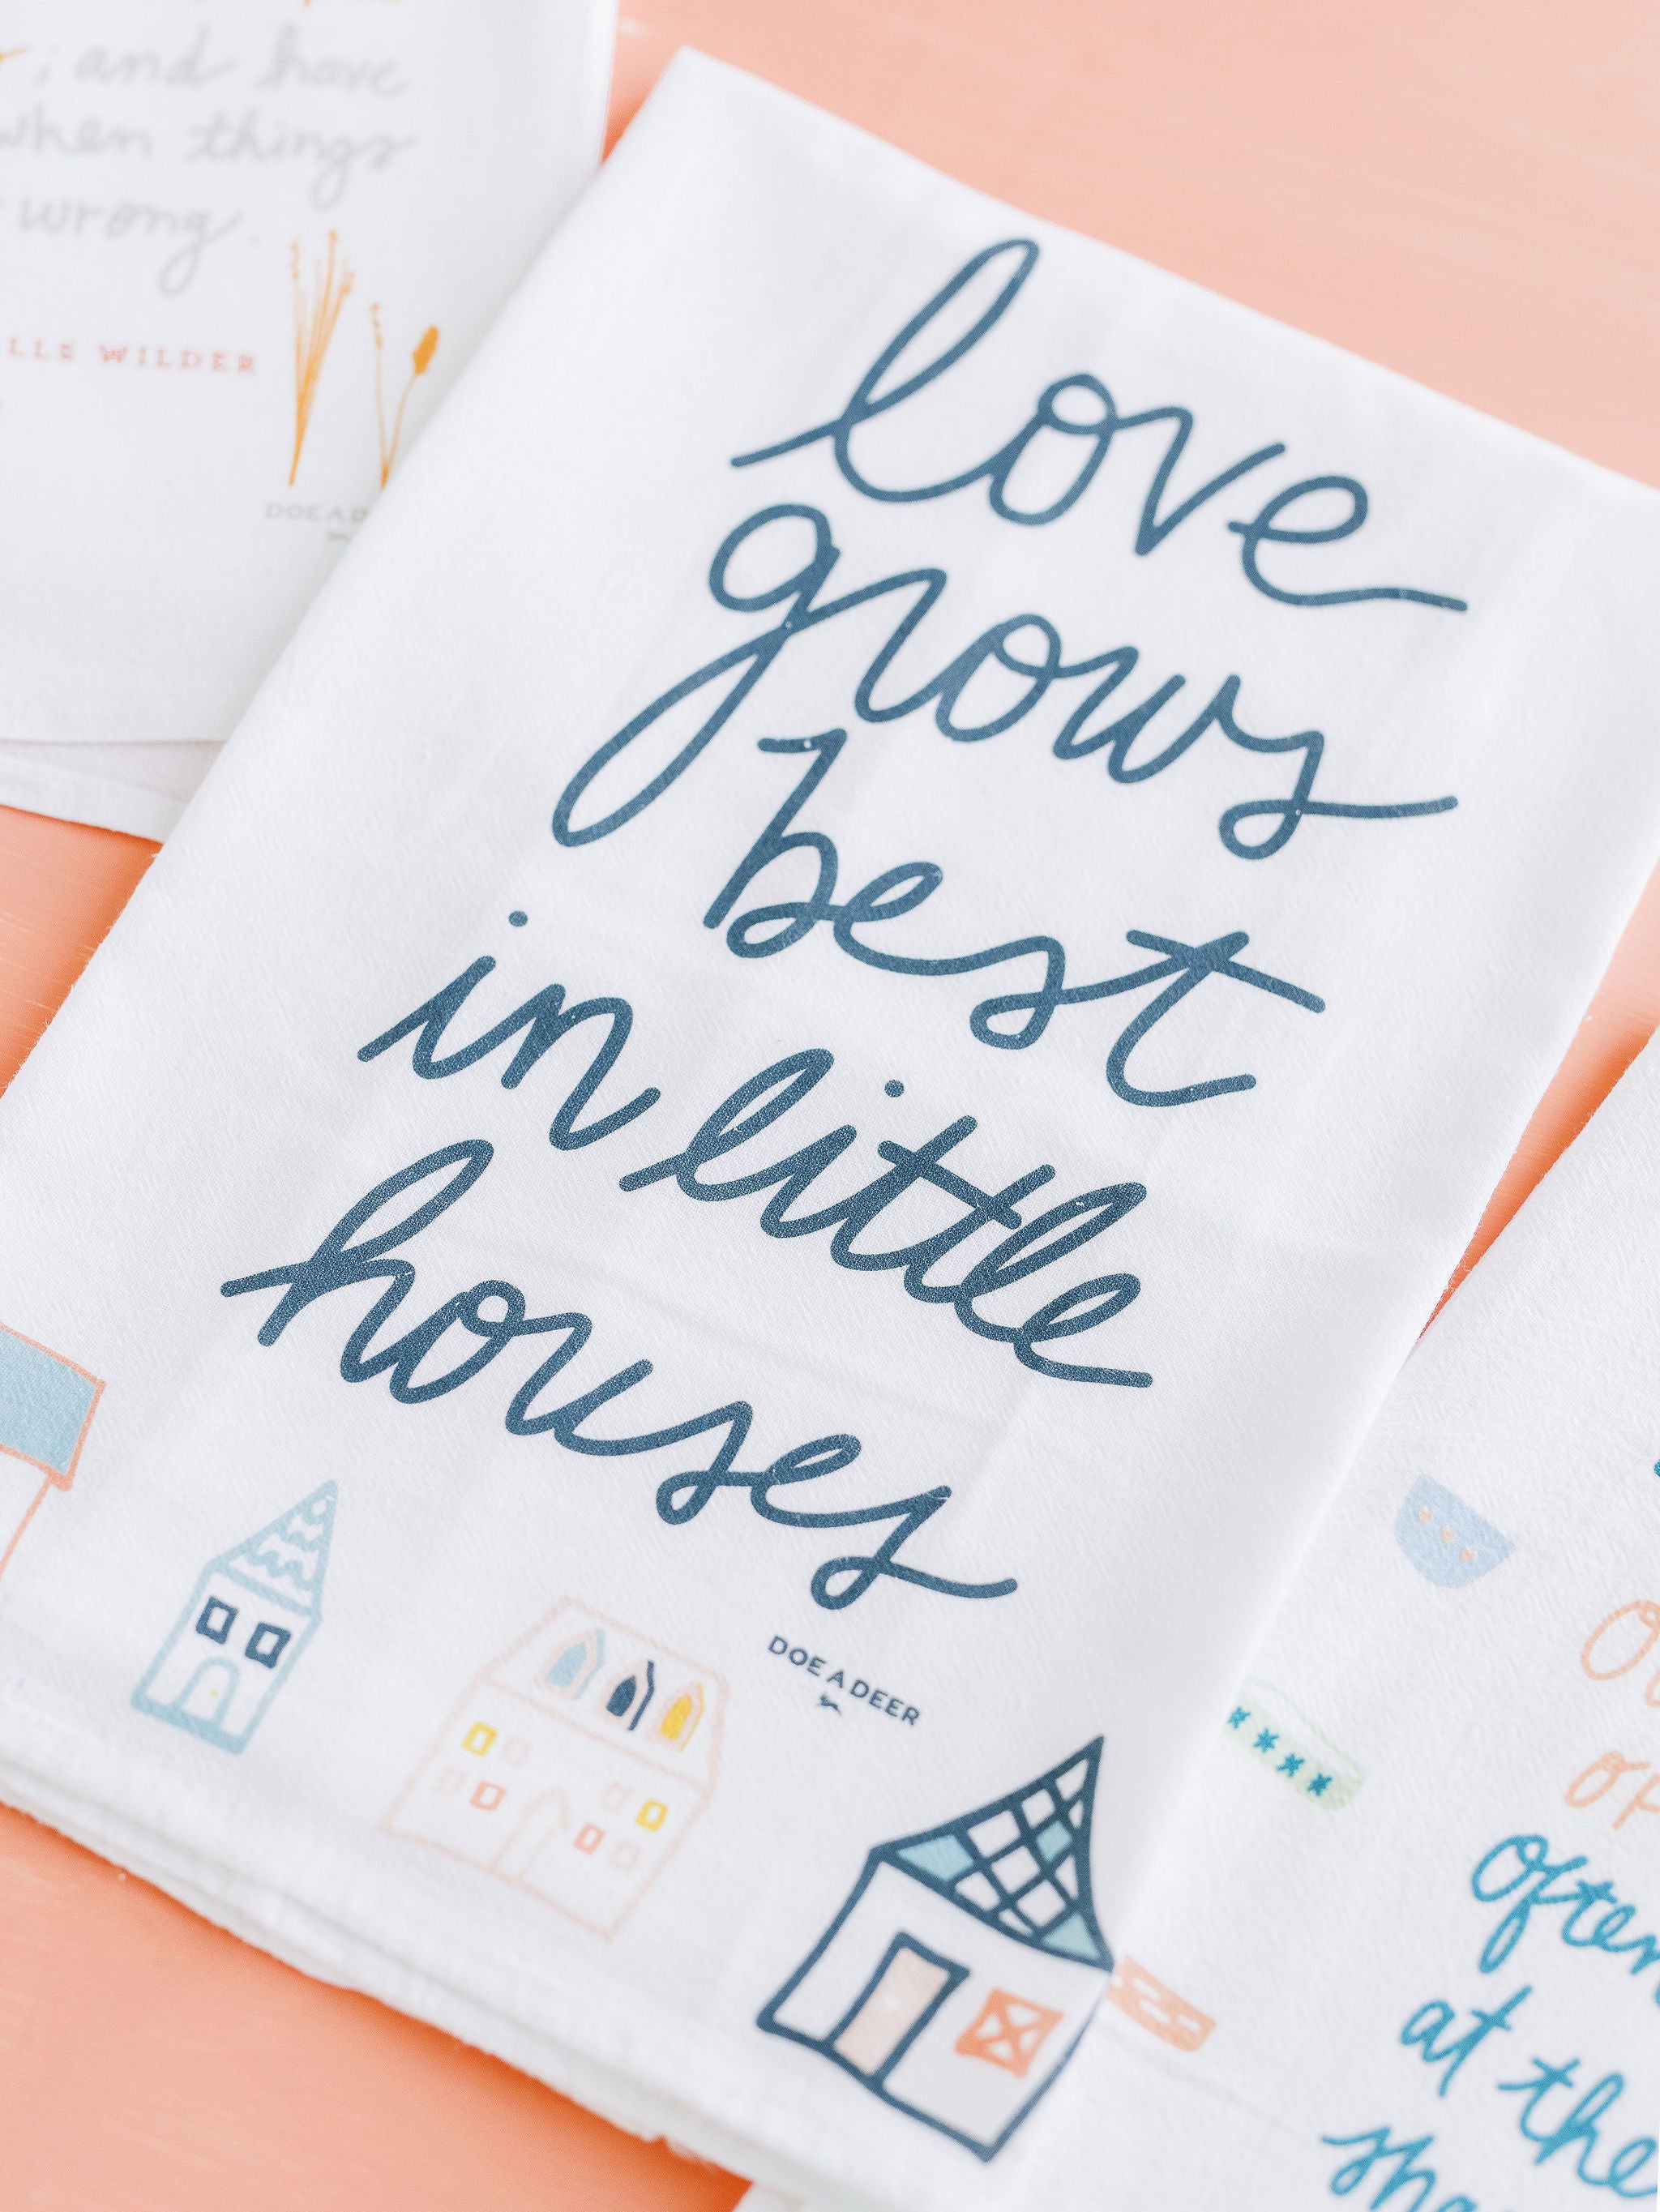 ; and have
when things
wrong.
WILDER
love
grows
best
in little
houses
DOE A DEER
often
at the